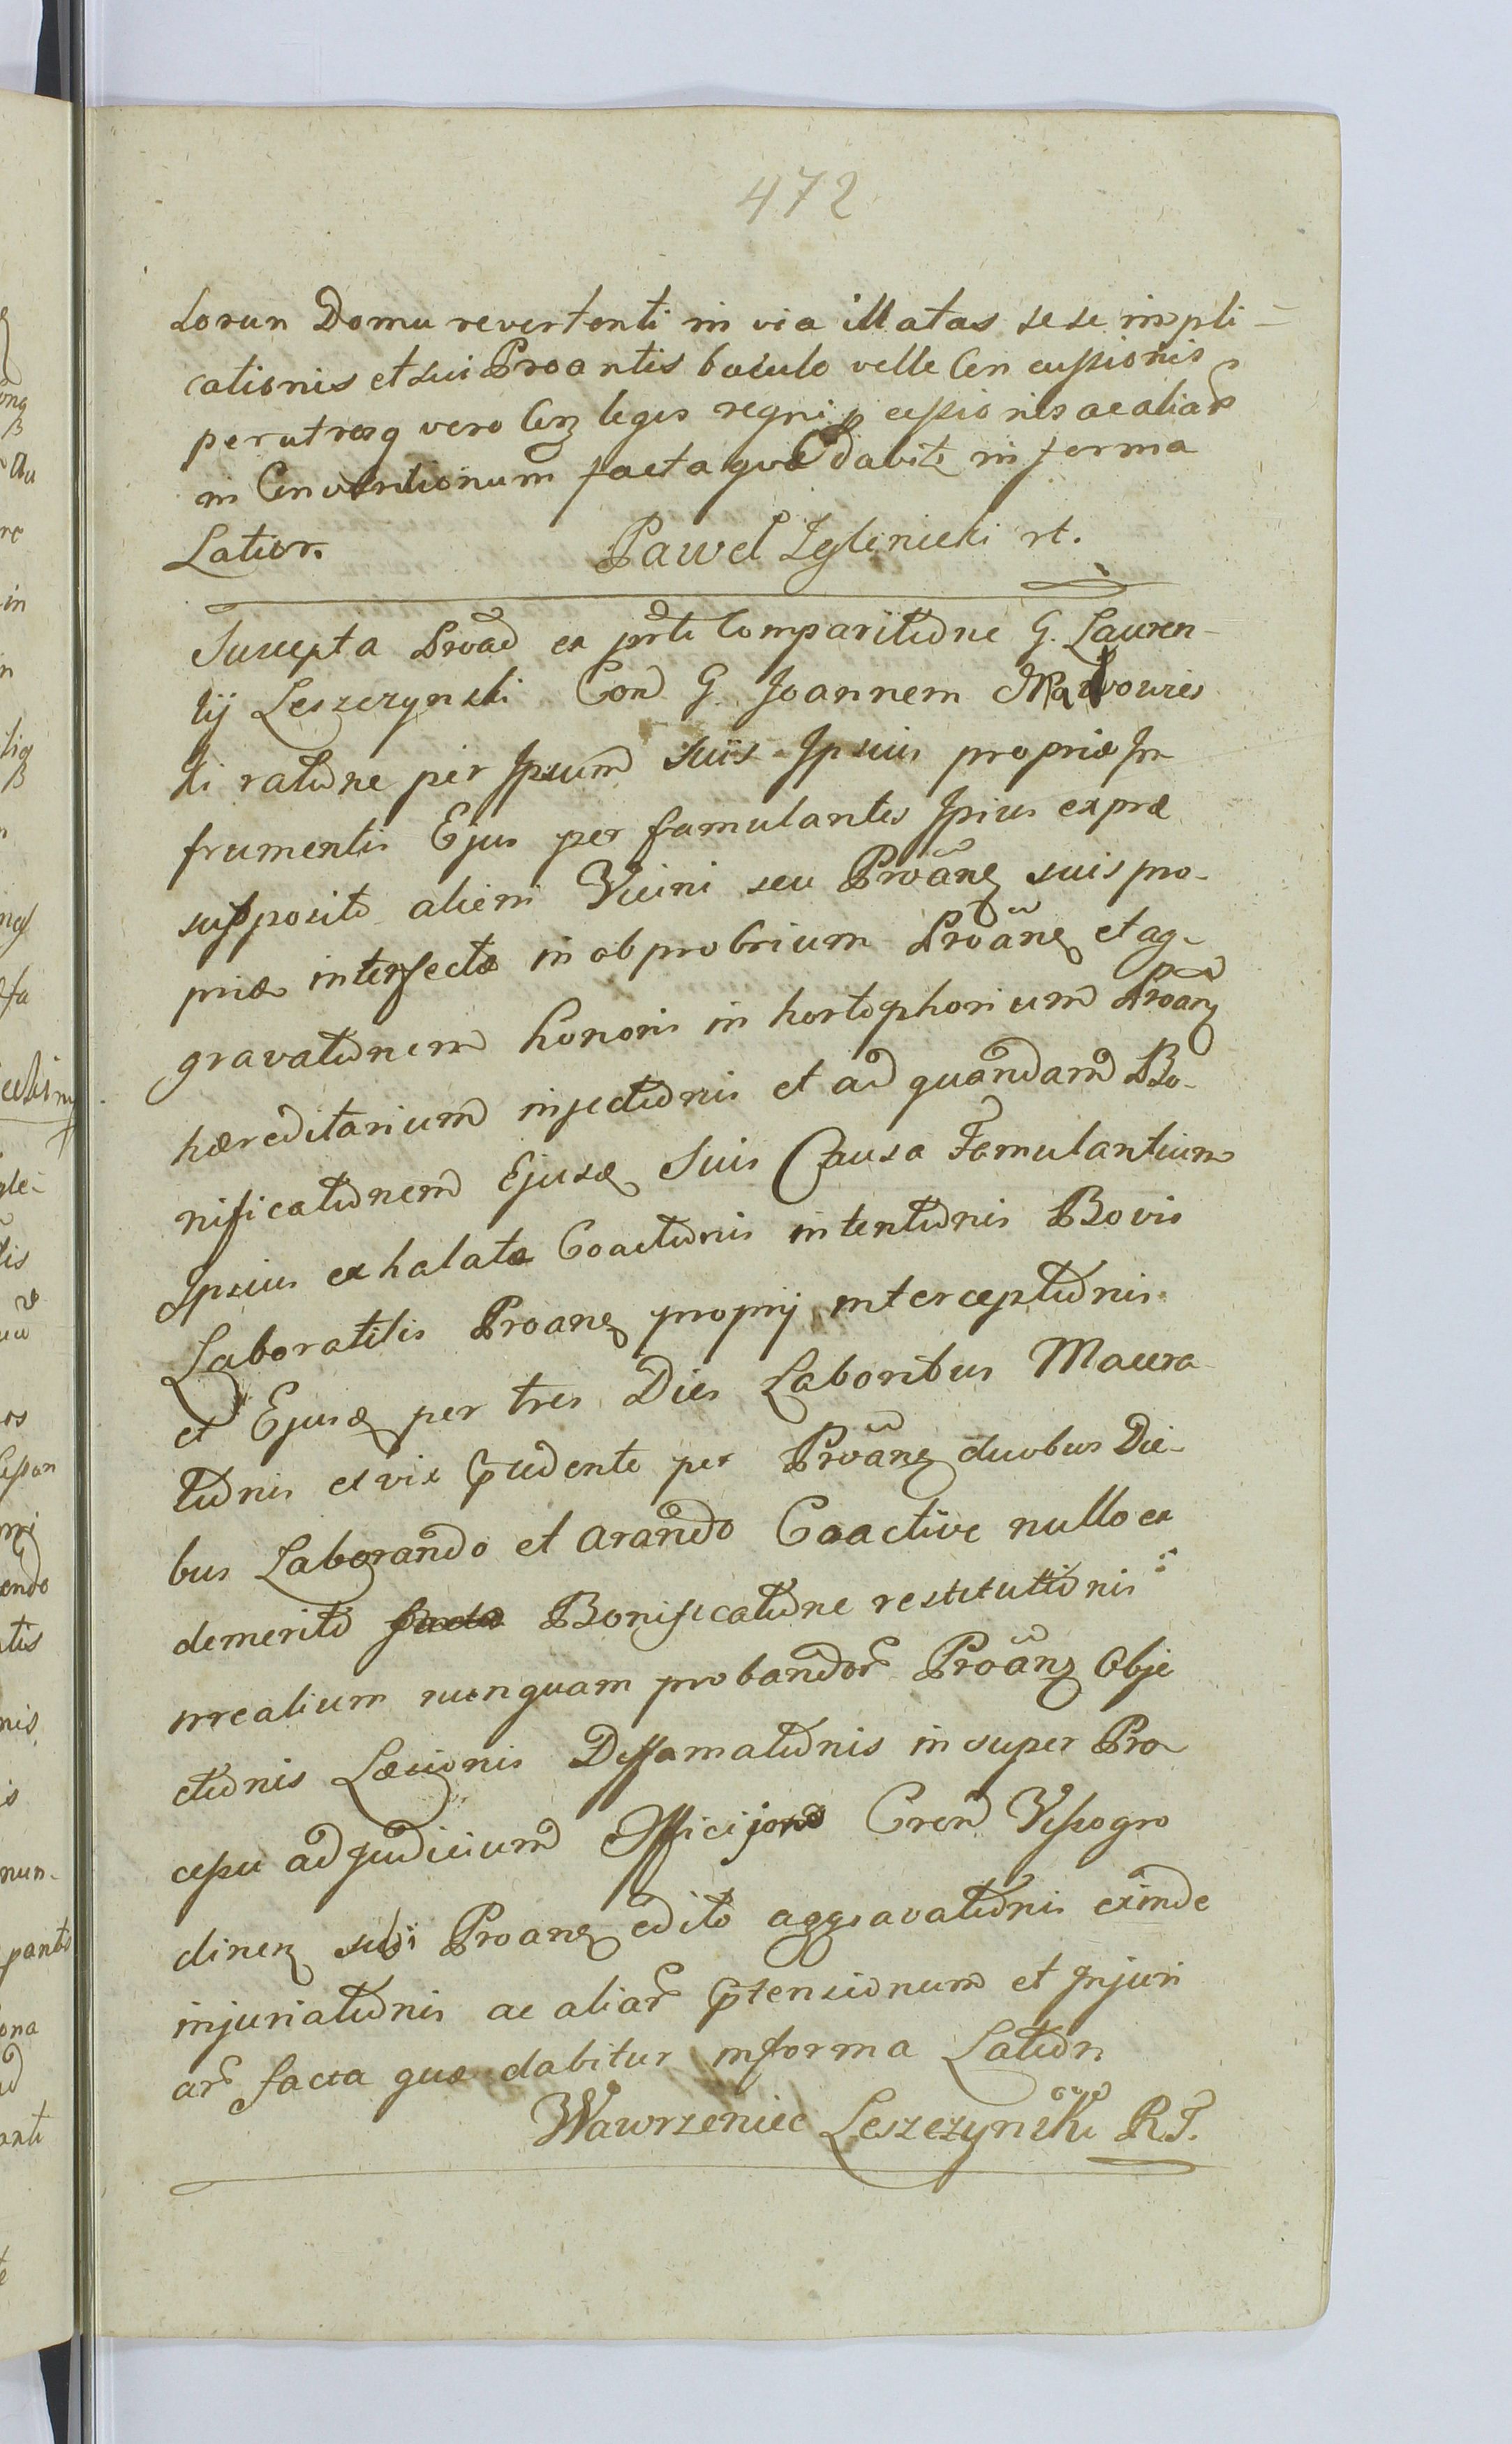 472
lorun Domu revertenti in via illatas sese impli-
cationis et sui Proantis baculo velle Con cussionis
per utrosq vero Con legis regni p cessionis ac aliar
in Conventionum facta quae dabitr in forma
Latior. Paweł Jglinicki rt.
Suscepta Proað ex prte Comparitione G. Lauren-
tij Leszczynski Con G. Joannem Makowies
ki ratione per Ipsum suis Ipsius propriae In
frumentis Ejus per famulantes Ipsius ex prae
supposito alieni Vicini seu Proãnẽ suis pro-
priae interfectae in obprobrium Proãnẽ et ag-
gravationem honoris in hortophorium Proanẽ
haereditarium injectionis et ad quandam Bo-
nificationem Ejusd Suis Causa Famulantium
Ipsius exhalatae Coactionis intentionis Bovis
Laboratilis Proanẽ proprij interceptionis
et Ejusd per tres Dies Laboribus Macera
tionis et vix prudente per Proãnẽ duobus Die-
bus Laborando et arando Coactive nullo ex
demerito Bonificatione restitutionis
irrealium nunquam probandor Proãnẽ Obje
ctionis Laesionis Deffamationis insuper Pro
cessu ad judicium Officij Cren Vissogro
dinen sibi Proanẽ edito aggravationis exinde
injuriationis ac aliar ptensionum et Injuri
ar facta quae dabitur in forma Lation
Wawrzeniec Leszczynski R.T.